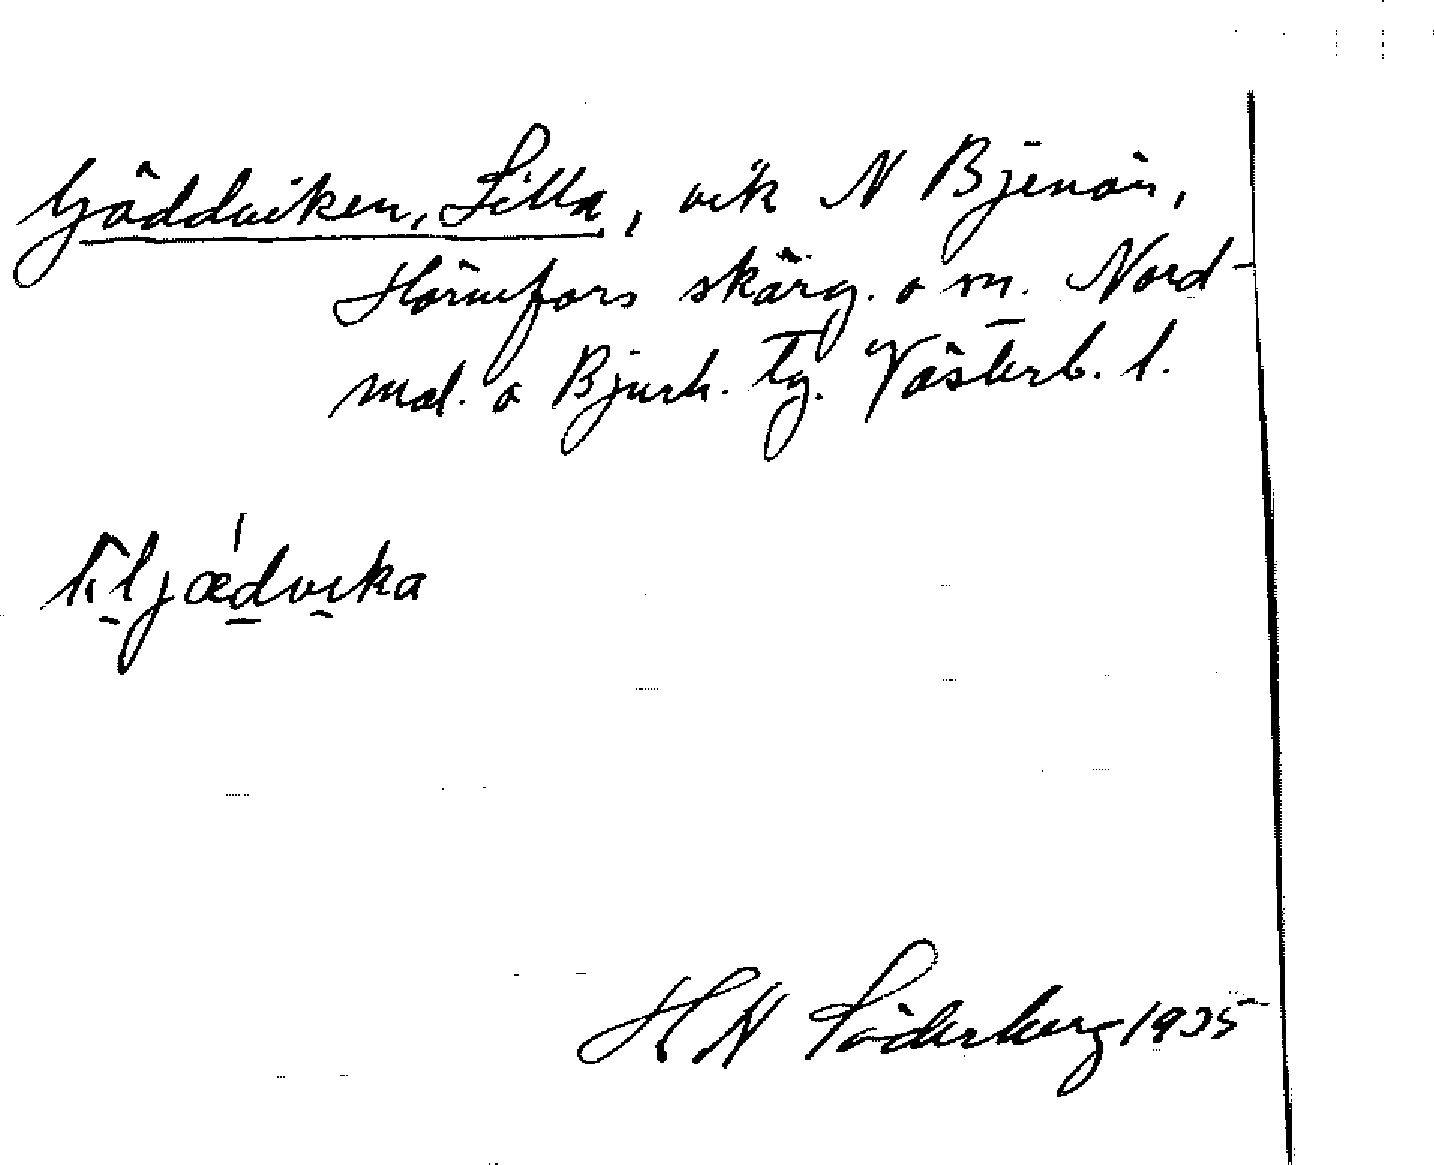 Gäddviken, Lilla, vik N Bjenön,
Hörnefors skärg. o m. Nord-
mal. o Bjurh. tg. Västerb. l.
liljædvika
H N Söderberg 1935